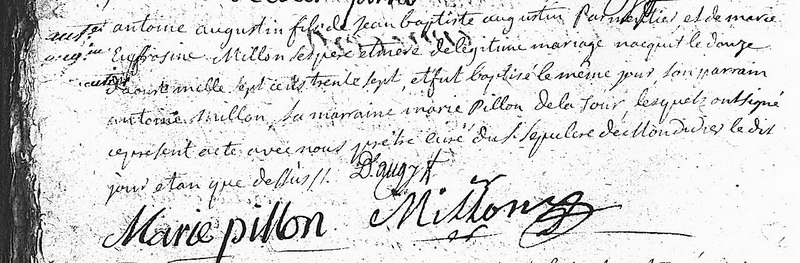 antoine augustin fils de Jean baptiste augustin Parmentier et de marie
Euffrosine Millon ses pere et mere de legitime mariage nacquit le douze
d'aout mille sept cens trente sept, et fut baptisé le même jour, son parrain
antoine Millon, sa marraine marie Pillon de la Tour lesquels ont signé
le present acte avec nous prêtre curé du St Sepulcre de Mondidier le dit
jour et an que dessus //. Daugy
Marie pillon Millon